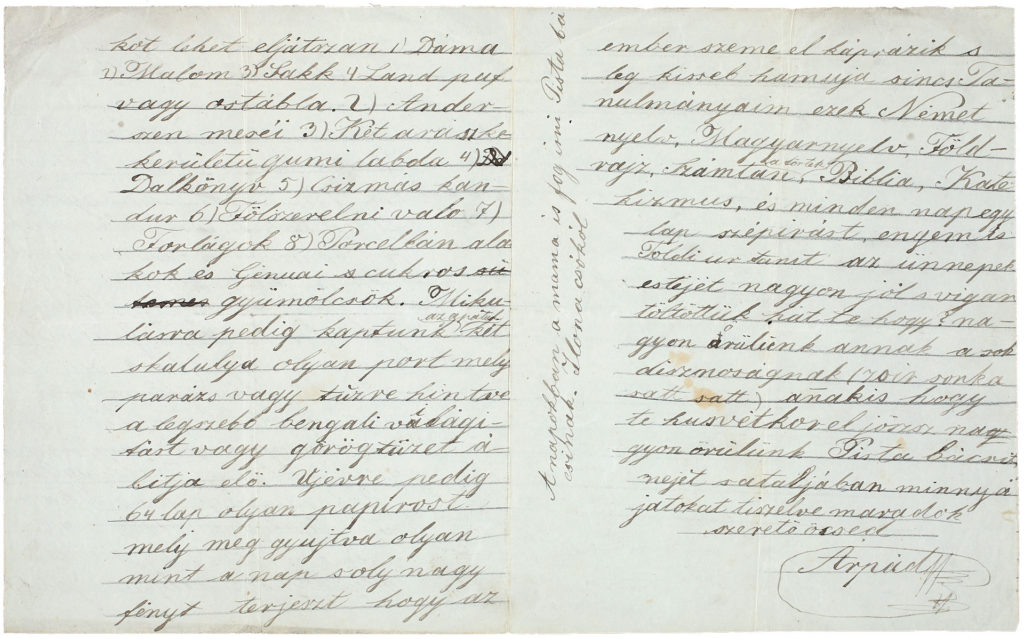 kot lehet eljátszan 1) Dáma
2) Malom 3) Sakk 4 Land paf
vagy ostábla. 2) Ander-
szen meséi 3) Két araszke
kerületügumi labda 4)
Dalkönyv 5) Csizmás kan
dur 6) Fölszerelni valo 7)
Forlágok 8) Porcelbán ala
kok és Génuai s cukros sü
temes gyümölcsök. Miku-
lásra pedig kaptunk az apától két
skatulya olyan port mely
parázs vagy tüzre hintve
a legszebb bengali világi-
tást vagy görögtüzet á-
litja elö. Ujévre pedig
64 lap olyan papirost
mely meg gyujtva olyan
mint a nap s oly nagy
fényt terjeszt hogy az
A napokban a mama is fog irni Pista bá
csinak. Ilona csókol
ember szeme el káprázik s
leg kissebb hamuja sincs. Ta-
nulmányaim ezek Német
nyelv, Magyarnyelv, Föld-
rajz, Számtan, Biblia, Kate
kizmus, és minden nap egy
lap szépirást, engem is
Földi ur tanit az ünnepek
estéjét nagyon jól s vigan
töltöttük hát te hogy? na-
gyon örülünk annak a sok
disznoságnak (70 ir sonka
satt satt) anakis hogy
te husvétkor el jössz nagy
gyon örülünk Pista bácsi
nejét sataljában minnyá
játokat tiszelve maradok
szeretö öcsed
Arpád